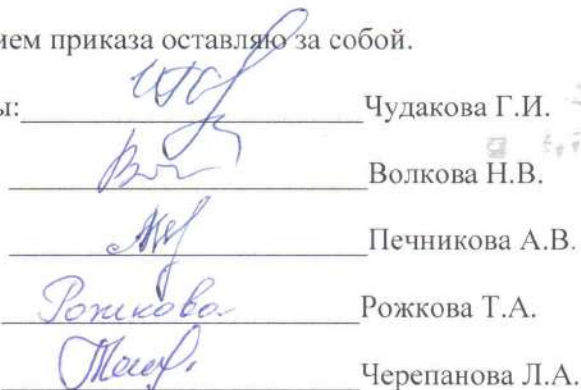 ием приказа оставляю за собой.
ы: Чудакова Г.И.
Волкова Н.В.
Печникова А.В.
Рожкова Рожкова Т.А.
Черепанова Л.А.